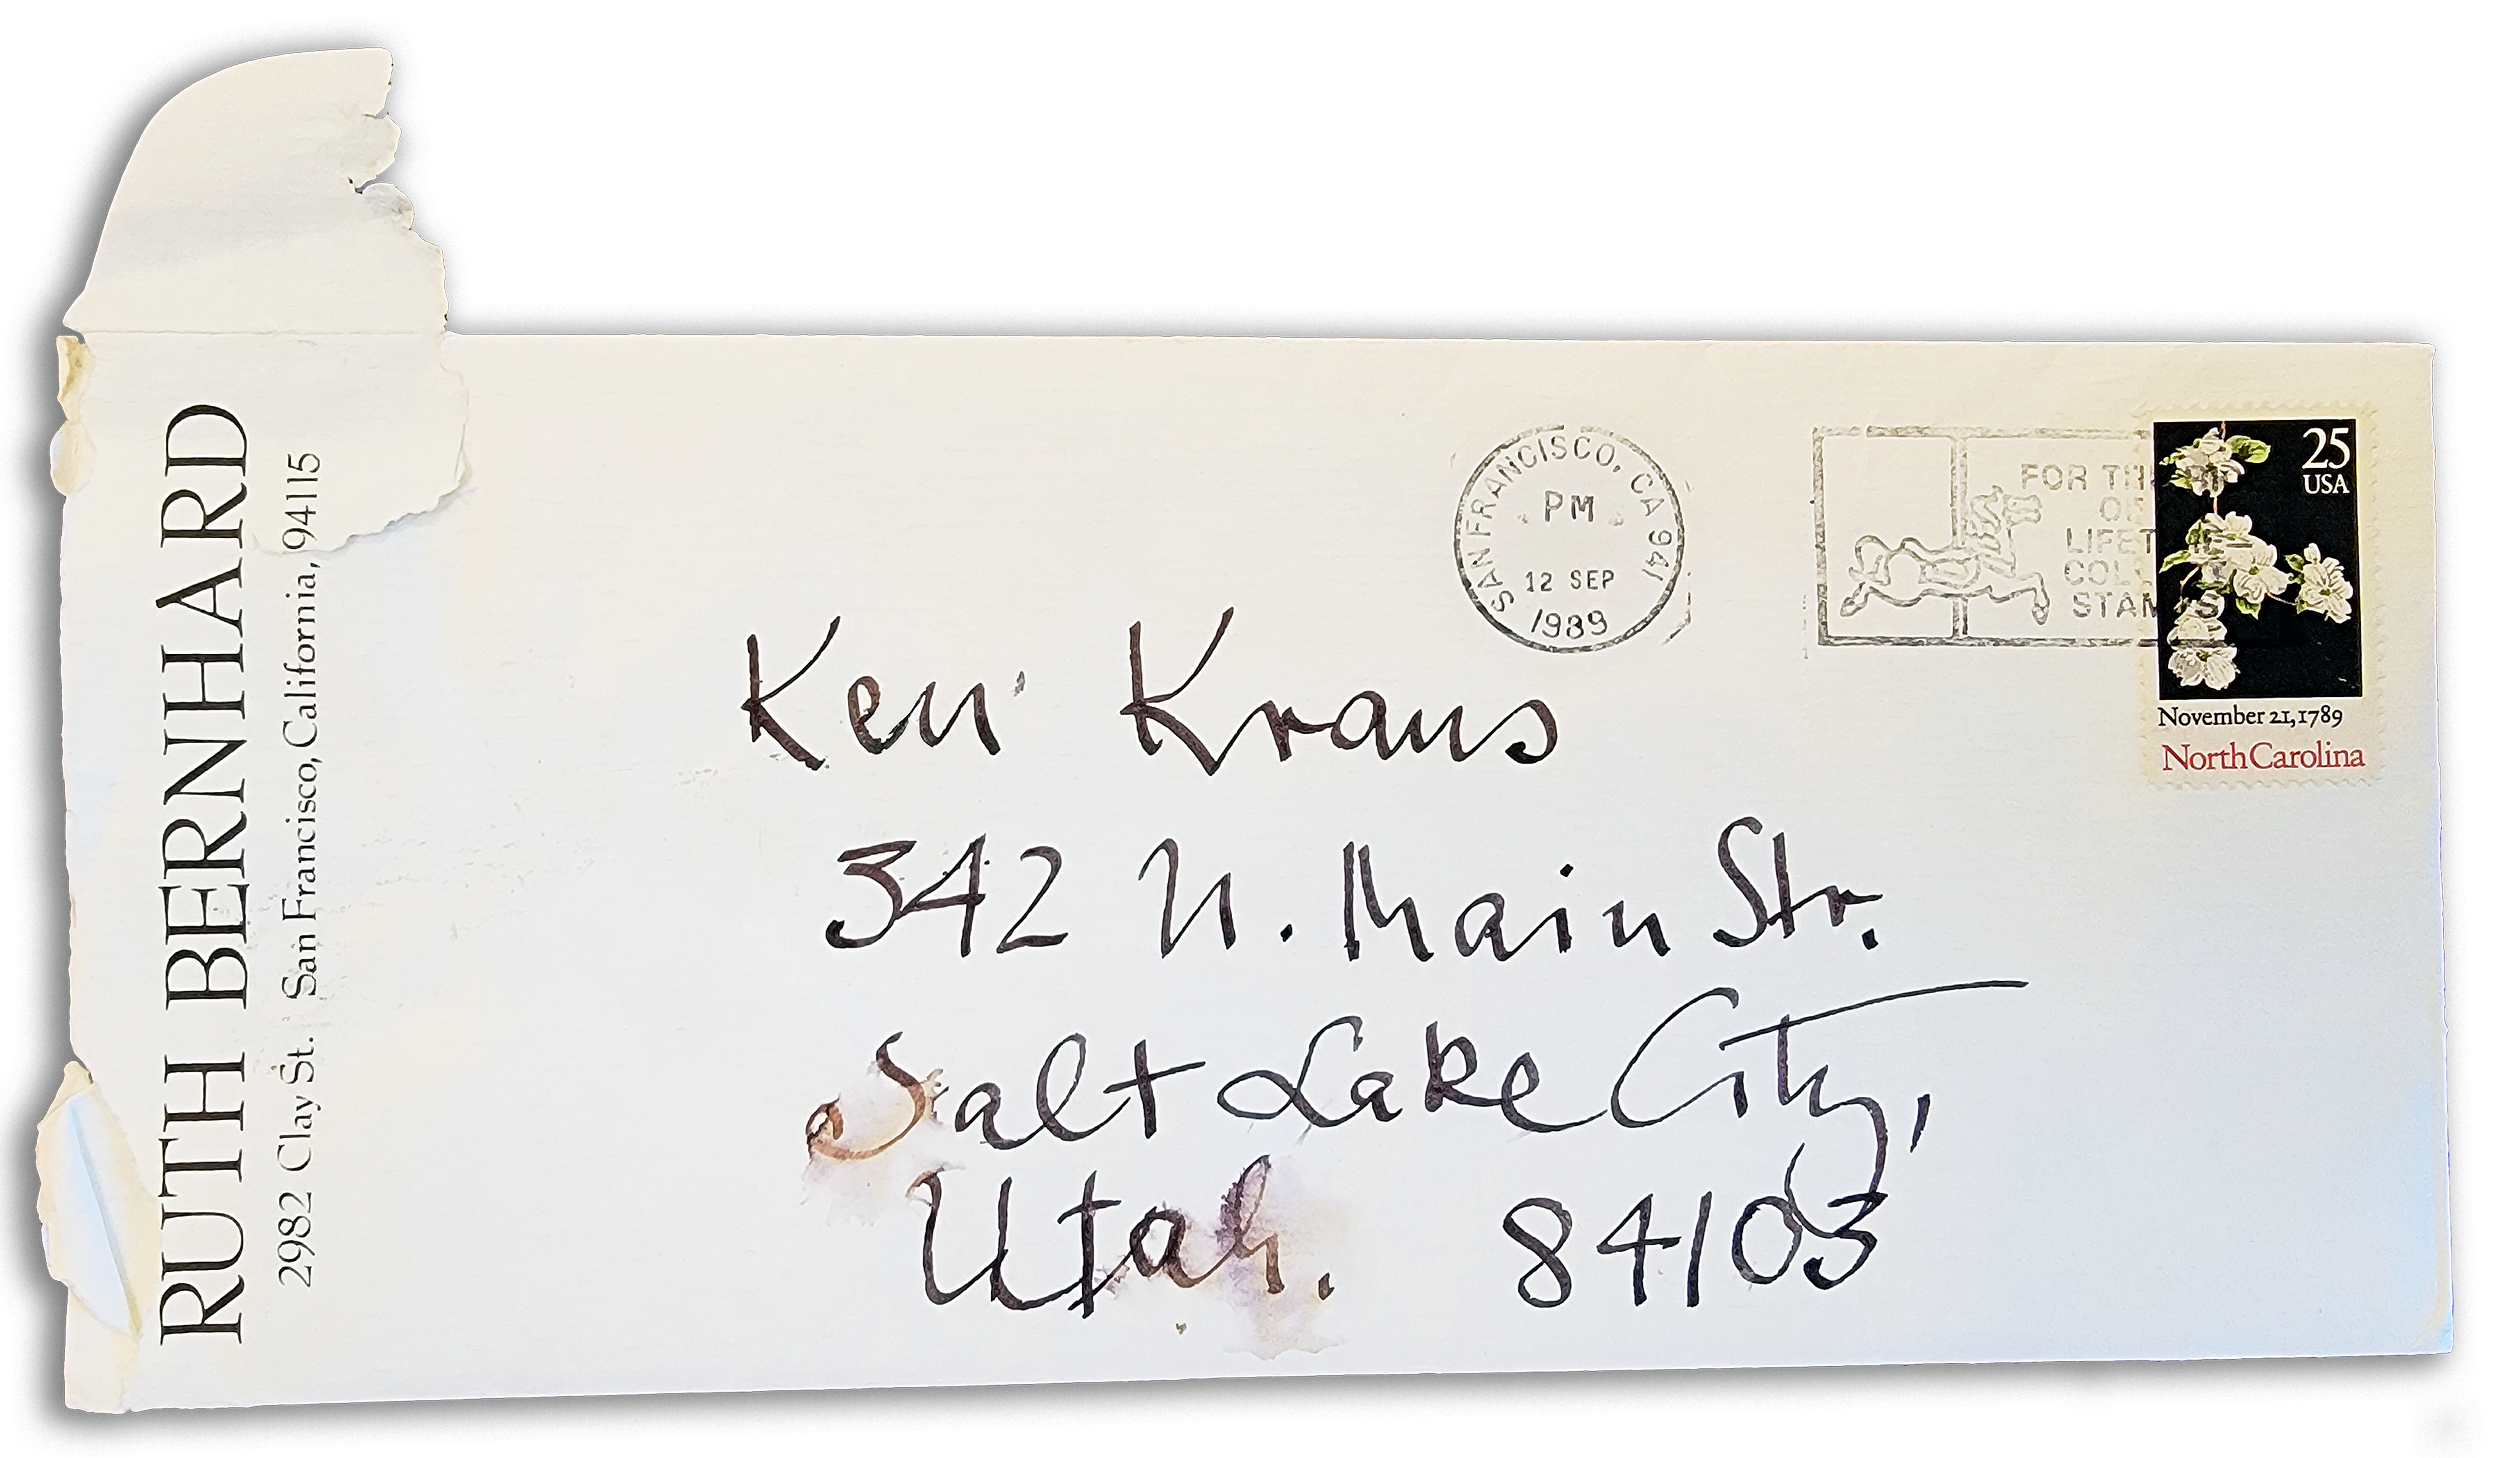 RUTH BERNHARD
2982 Clay St. San Francisco, California, 94115
SAN FRANCISCO, CA 941
PM
12 SEP
1989
FOR THE
OF
LIFETIME
COL
STAMPS
25
USA
November 21, 1789
North Carolina
Ken Kraus
342 N. Main Str.
Salt Lake City,
Utah. 84103